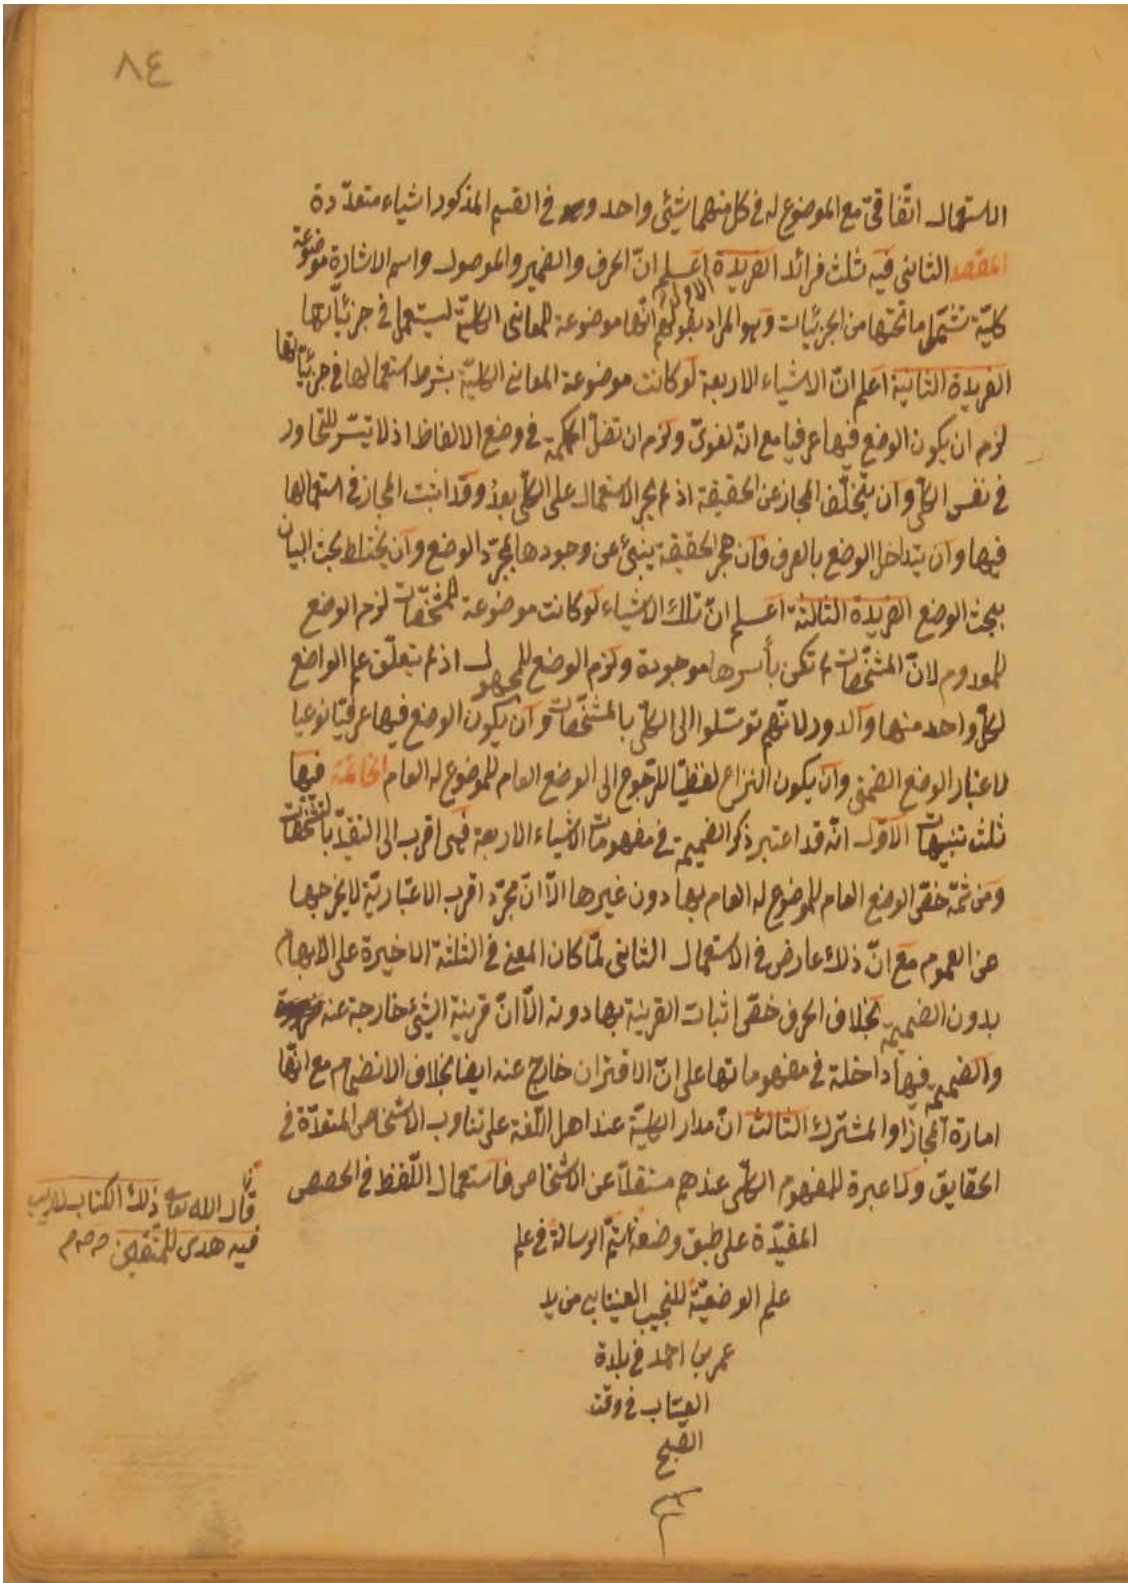 ٨٤
الاستعمال اتّفاقيّ مع الموضوع له في كل منهما شيئى واحد وهو في القسم المذكور اشياء متعدّدة
المقصد الثانى فيه ثلث فرائد الفريدة الاولى اعلم انّ الحرف والضمير والموصول واسم الاشارة موضوعة
كليّة تشتمل ما تحتها من الجزئيات وهو المراد بقولهم انّها موضوعة للمعانى الكليّة ليستعمل في جزئيّاتها
الفريدة الثانية اعلم انّ الاشياء الاربعة لو كانت موضوعة المعانى الكليّة بشرط استعمالها في جزئيّاتها
لزم ان يكون الوضع فيها عرفيا مع انّه لغويّ ولزم ان تضلّ الحكمة في وضع الالفاظ اذ لا تيسّر للتحاور
في نفس الكلّي وان يتخلّف المجاز عن الحقيقة اذ لم يجر الاستعمال على الكلّي بعدُ وقد اثبت المجاز في استعمالها
فيها وان يتداخل الوضع بالعرف فان هجر الحقيقة ينبئ عن وجودها بمجرّد الوضع وان يختلط بحث البيان
ببحث الوضع الفريدة الثالثة اعلم انّ تلك الاشياء لو كانت موضوعة للمشخّصات لزم الوضع
للمعدوم لانّ المشخّصات لم تكن بأسرها موجودة ولزم الوضع للمجهول اذ لم يتعلّق علم الواضع
لكلّ واحد منها والدور لانّهم توسّلوا الى الكلّي بالمشخّصات وان يكون الوضع فيها عرفيّا نوعيا
لاعتبار الوضع الضمنى وان يكون النزاع لفظيّا للرّجوع الى الوضع العام للموضوع له العام الخاتمة فيها
ثلث تنبيهات الاوّل انّه قد اعتبر ذكر الضميمة في مفهومات الاشياء الاربعة فهى اقرب الى التقيّد بالمشخّصات
ومن ثمّة خصّ الوضع العام للموضوع له العام بها دون غيرها الاّ انّ مجرّد اقرب الاعتباريّة لا يخرجها
عن العموم مع انّ ذلك عارض في الاستعمال الثانى لمّا كان المعنى في الثلثة الاخيرة على الابهام
بدون الضميمة بخلاف الحرف خصّ اثبات القرينة بها دونه الاّ انّ قرينة الشيئ خارجة عنه
والضميمة فيها داخلة في مفهوماتها على انّ الاقتران خارج عنه ايضا بخلاف الانضمام مع انّها
امارة المجاز او المشترك الثالث انّ مدار الكليّة عند اهل اللّغة على تناوب الاشخاص المتعدّدة في
الحقايق ولا عبرة للمفهوم الكلّي عندهم مستقلّا عن الاشخاص فاستعمال اللّفظ في الحصص
المقيّدة على طبق وضعه تمّ الرسالة في علم
علم الوضعيّة للنجيب العينتابى من يد
عمر بن احمد في بلدة
العينتاب في وقت
الصّبح
م
قال الله تعالى ذلك الكتاب لا ريب
فيه هدى للمتّقين